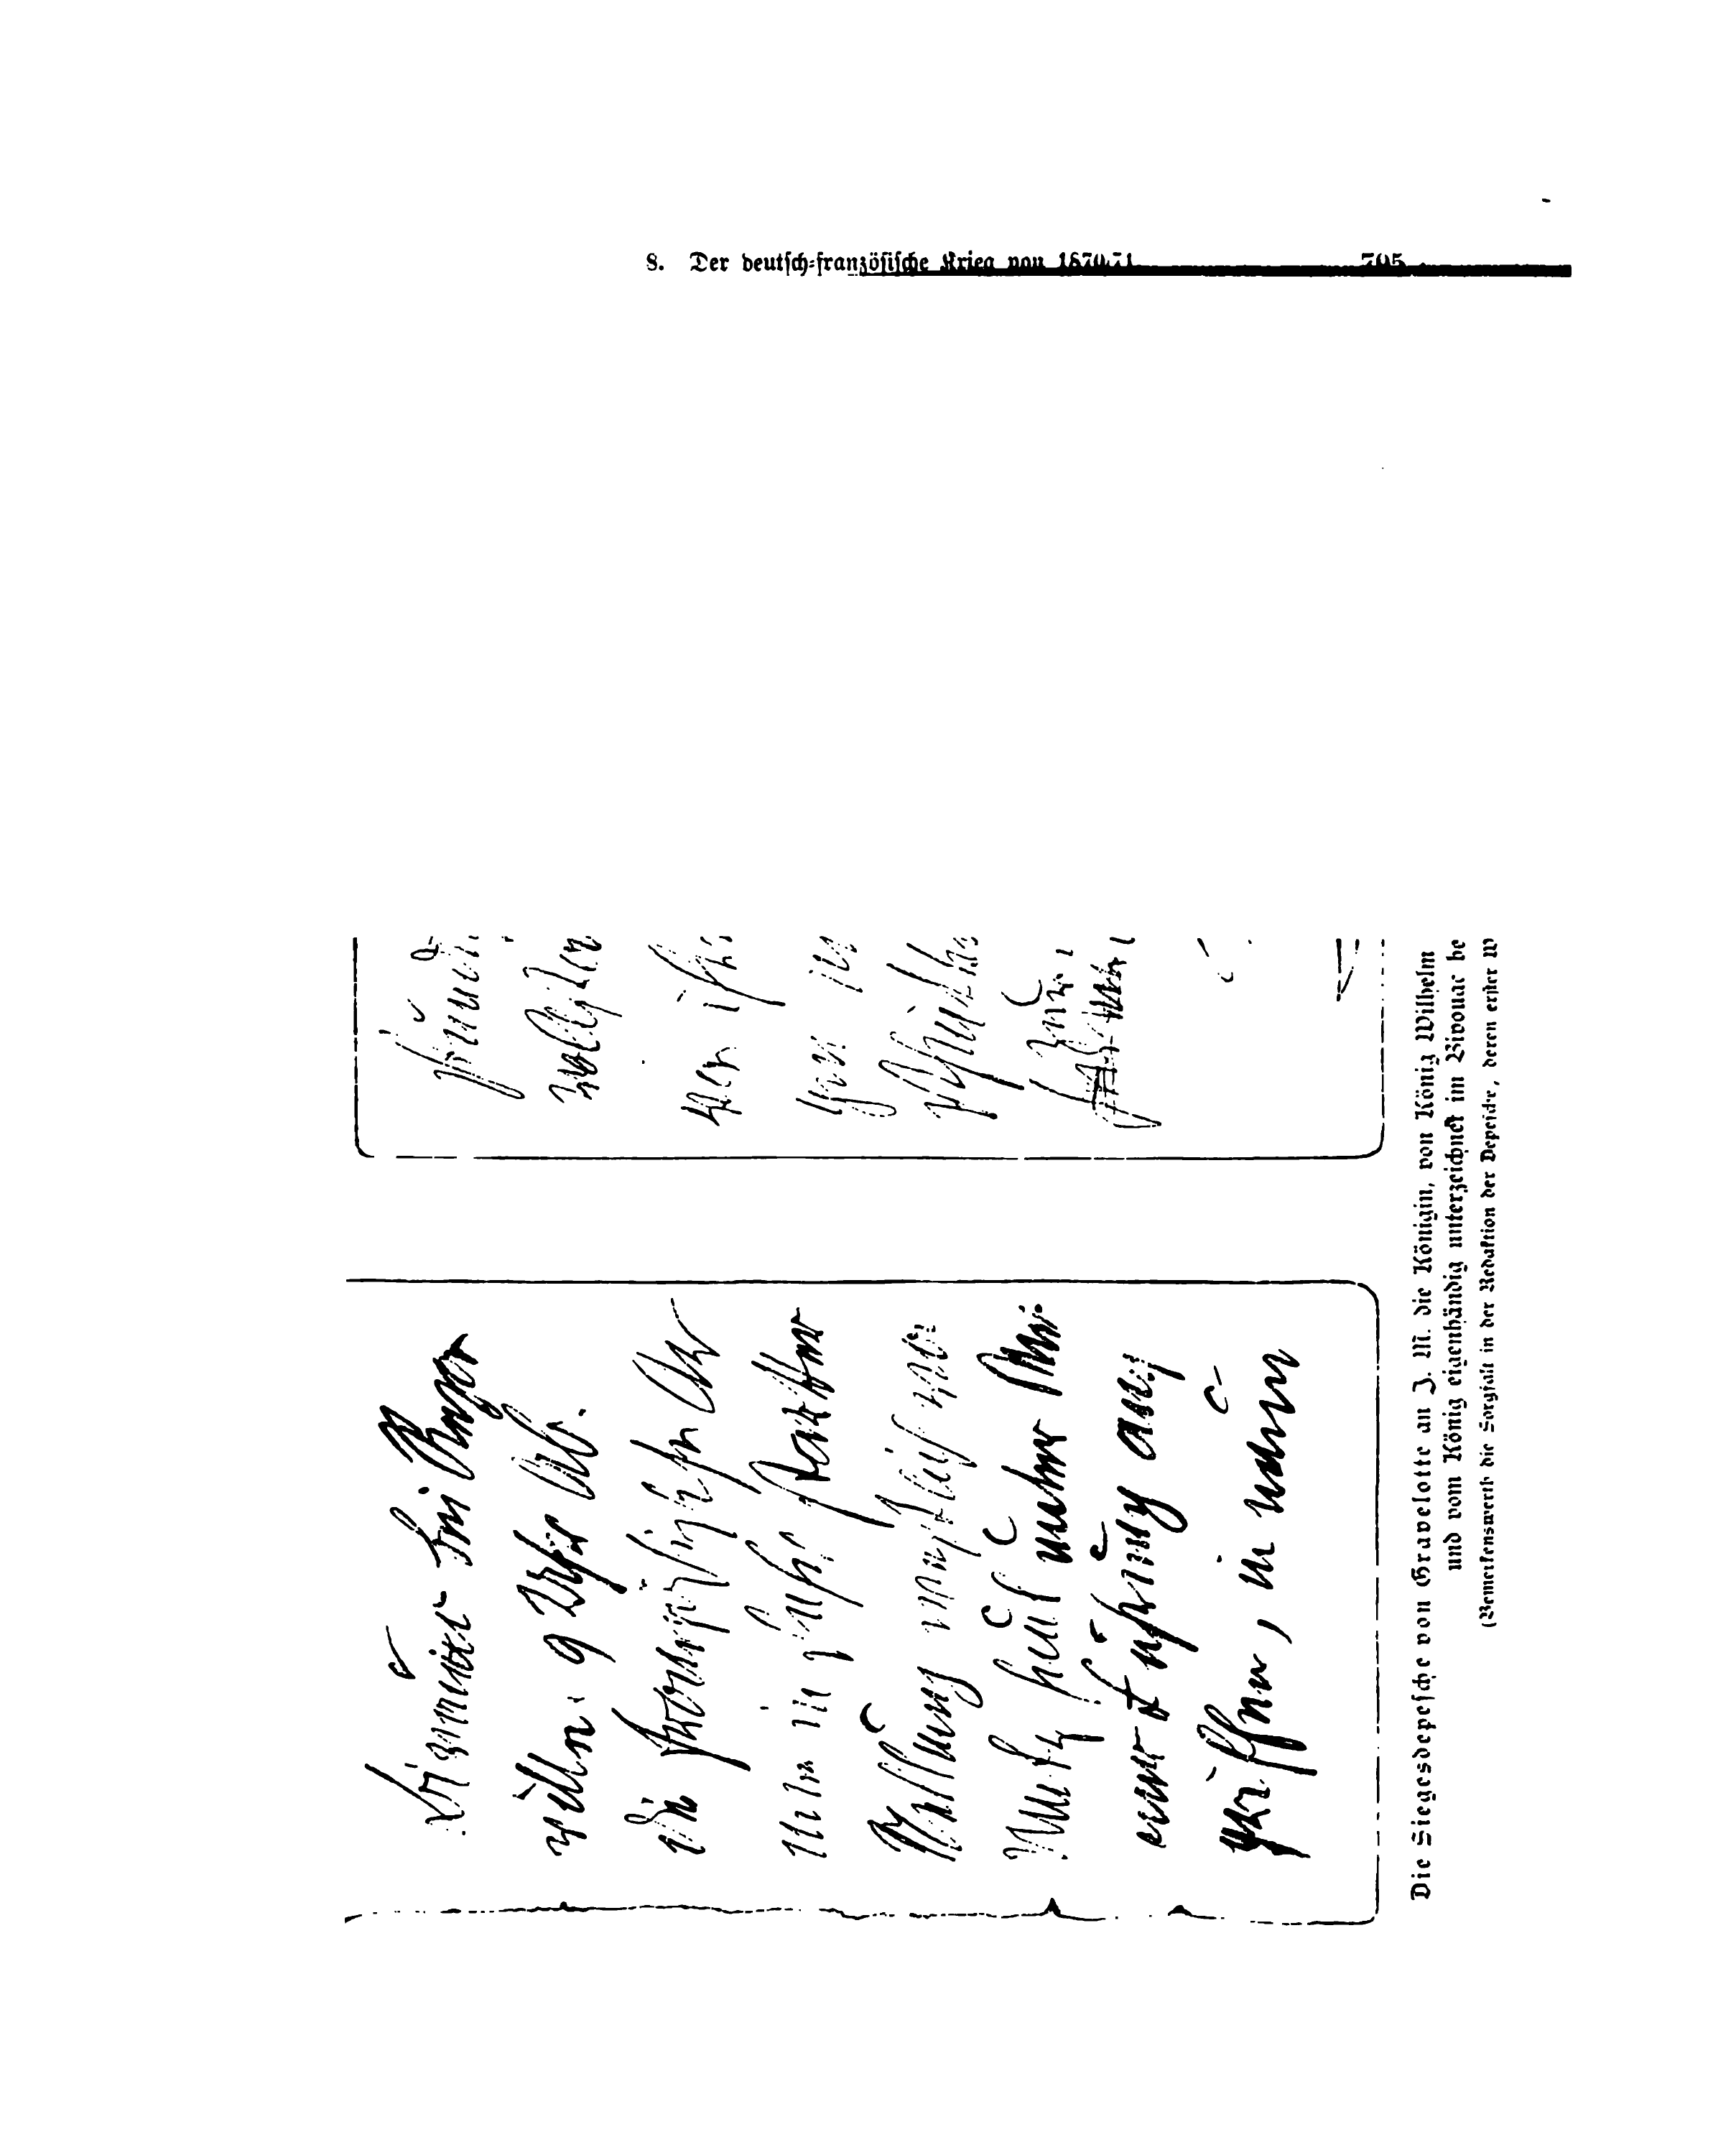 8. Der deutsch-französische Krieg von 1870/71. 705
Bivouac bei Rezon
ville 9 Uhr Ab.
die französische Ar
mee in sehr starker
Stellung westlich von
Metz heut unter Mei
ner Führung ange
griffen, in neun
stündi
von ihr
Die Siegesdepesche von Gravelotte an J. M. die Königin, von König Wilhelm
und vom König eigenhändig unterzeichnet im Bivouac be
(Bemerkenswerth die Sorgfalt in der Redaktion der Depesche, deren erster W